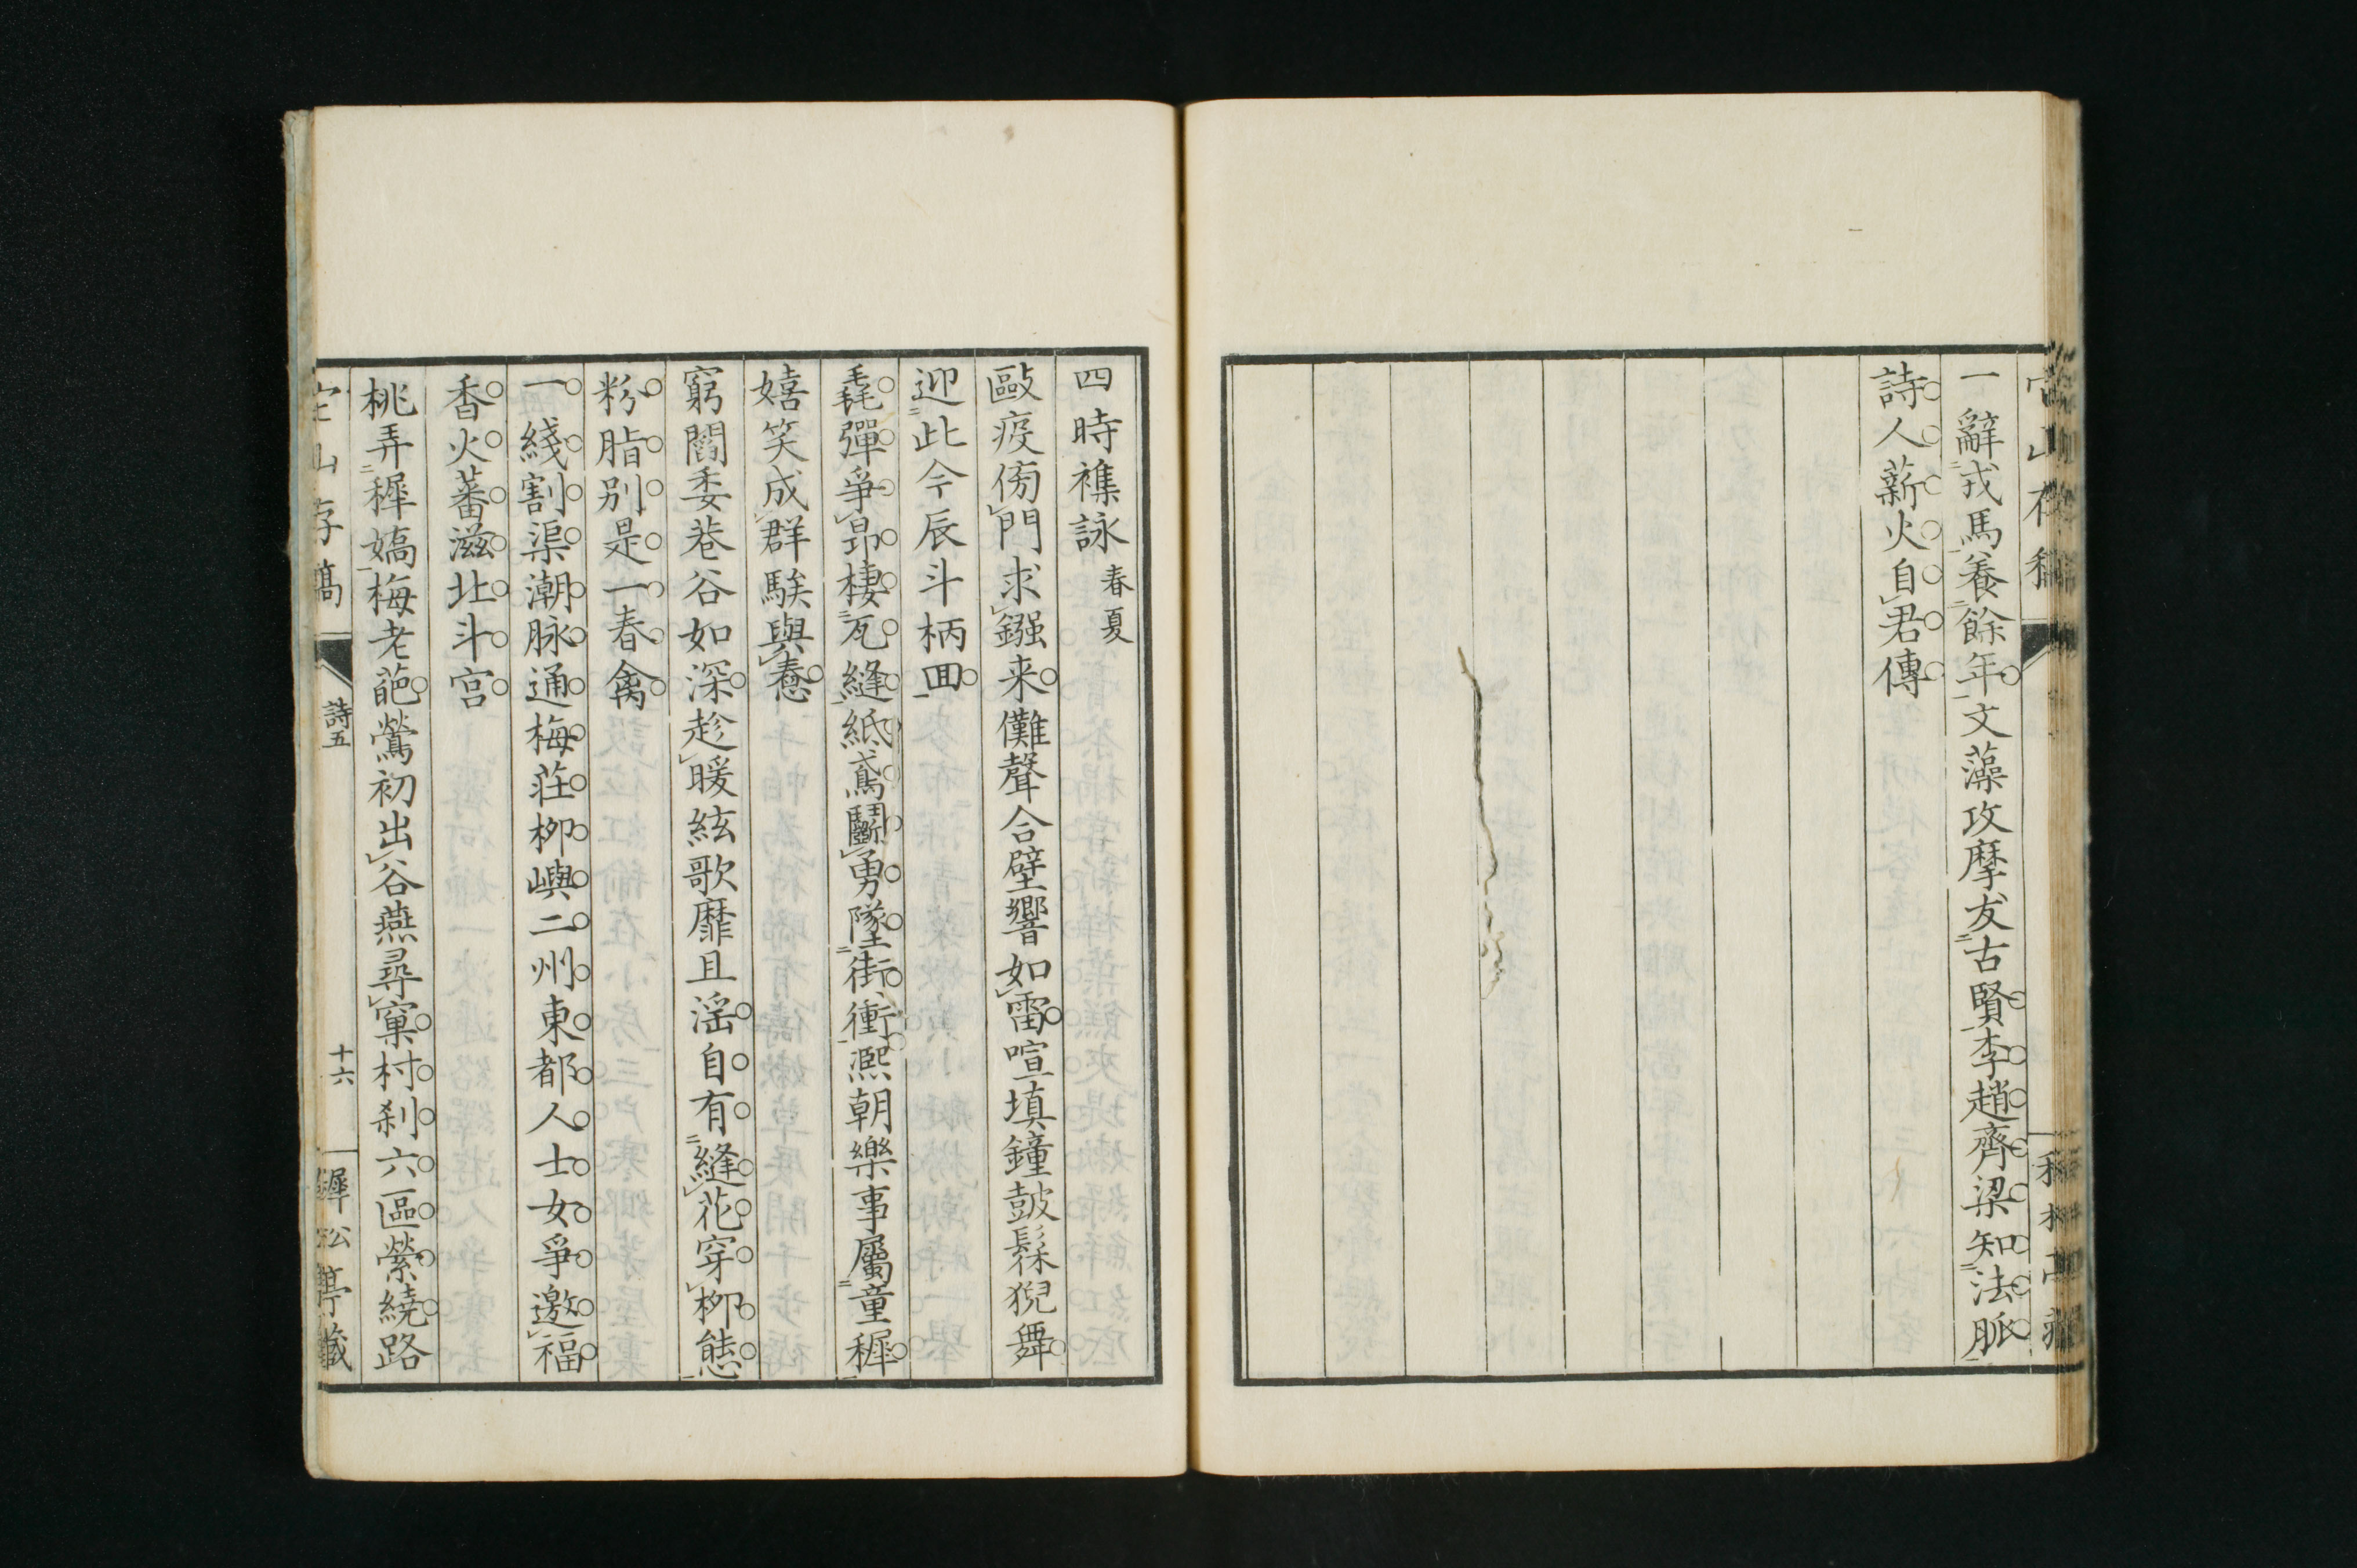 一辭戎馬養餘年文藻攻摩友古賢李趙齊梁知法脈
詩人薪火自君傳
四時襍詠 春夏
毆疫傍門求鏹来儺聲合壁響如雷喧填鐘皷髹猊舞
迎此今辰斗柄回
毳彈爭昂棲瓦縫紙鳶鬬勇墜街衝熈朝樂事屬童穉
嬉笑成群騃與惷
窮閻委巷谷如深趁暖絃歌靡且滛自有縫花穿栁態
粉脂别是一春禽
一綫割渠潮脉通梅荘栁嶼二州東都人士女爭邀福
香火蕃滋北斗宫
桃弄穉嬌梅老葩鶯初出谷燕尋窠村刹六區縈繞路
詩五
十六